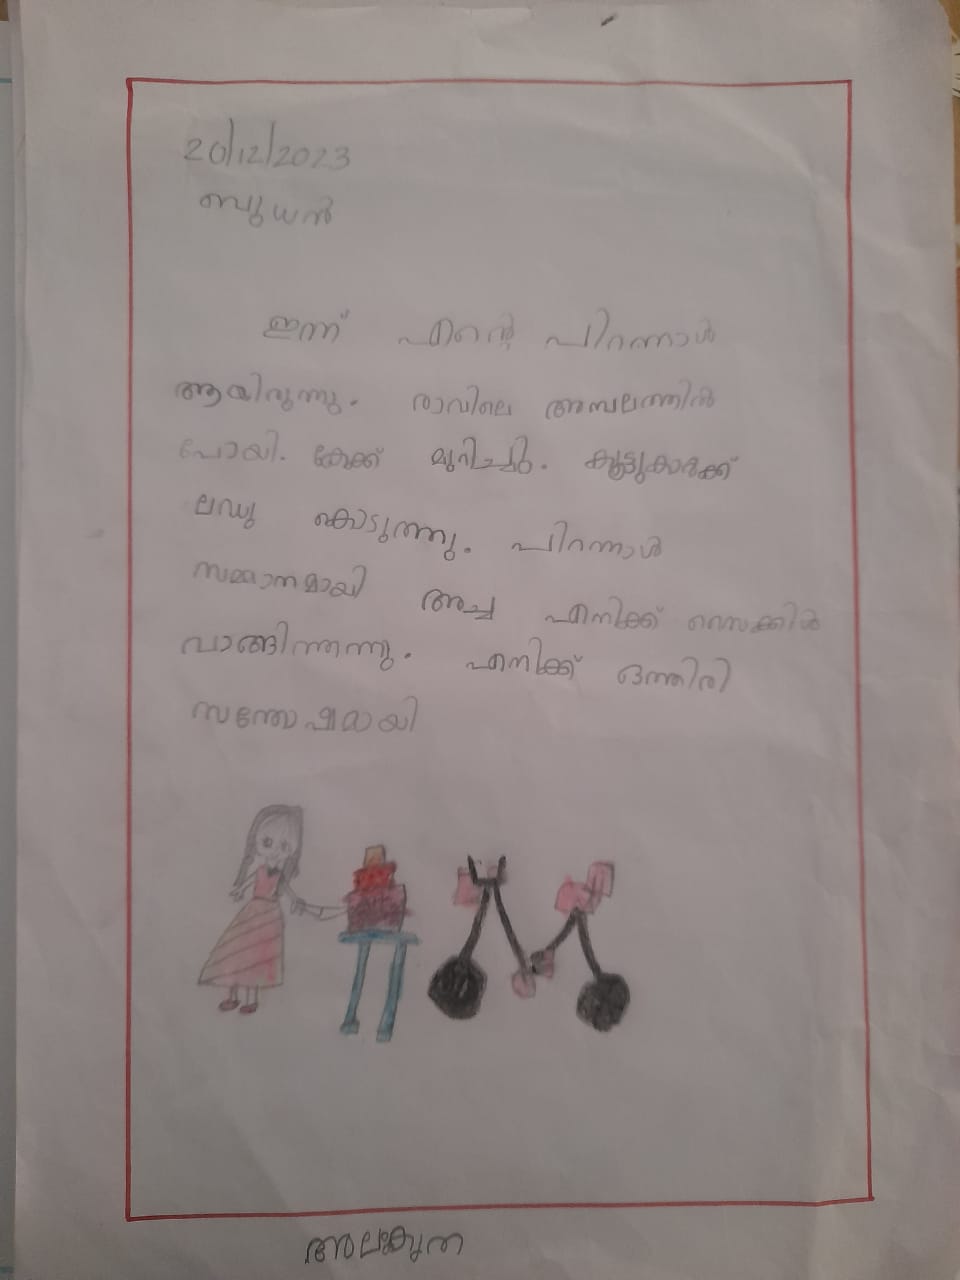 20/12/2023
ബുധൻ
ഇന്ന് എന്റെ പിറന്നാൾ
ആയിരുന്നു. രാവിലെ അമ്പലത്തിൽ
പോയി. കേക്ക് മുറിച്ചു. കൂട്ടുകാർക്ക്
ലഡു കൊടുത്തു. പിറന്നാൾ
സമ്മാനമായി അച്ഛ എനിക്ക് സൈക്കിൾ
വാങ്ങിത്തന്നു. എനിക്ക് ഒത്തിരി
സന്തോഷമായി
അലംകൃത